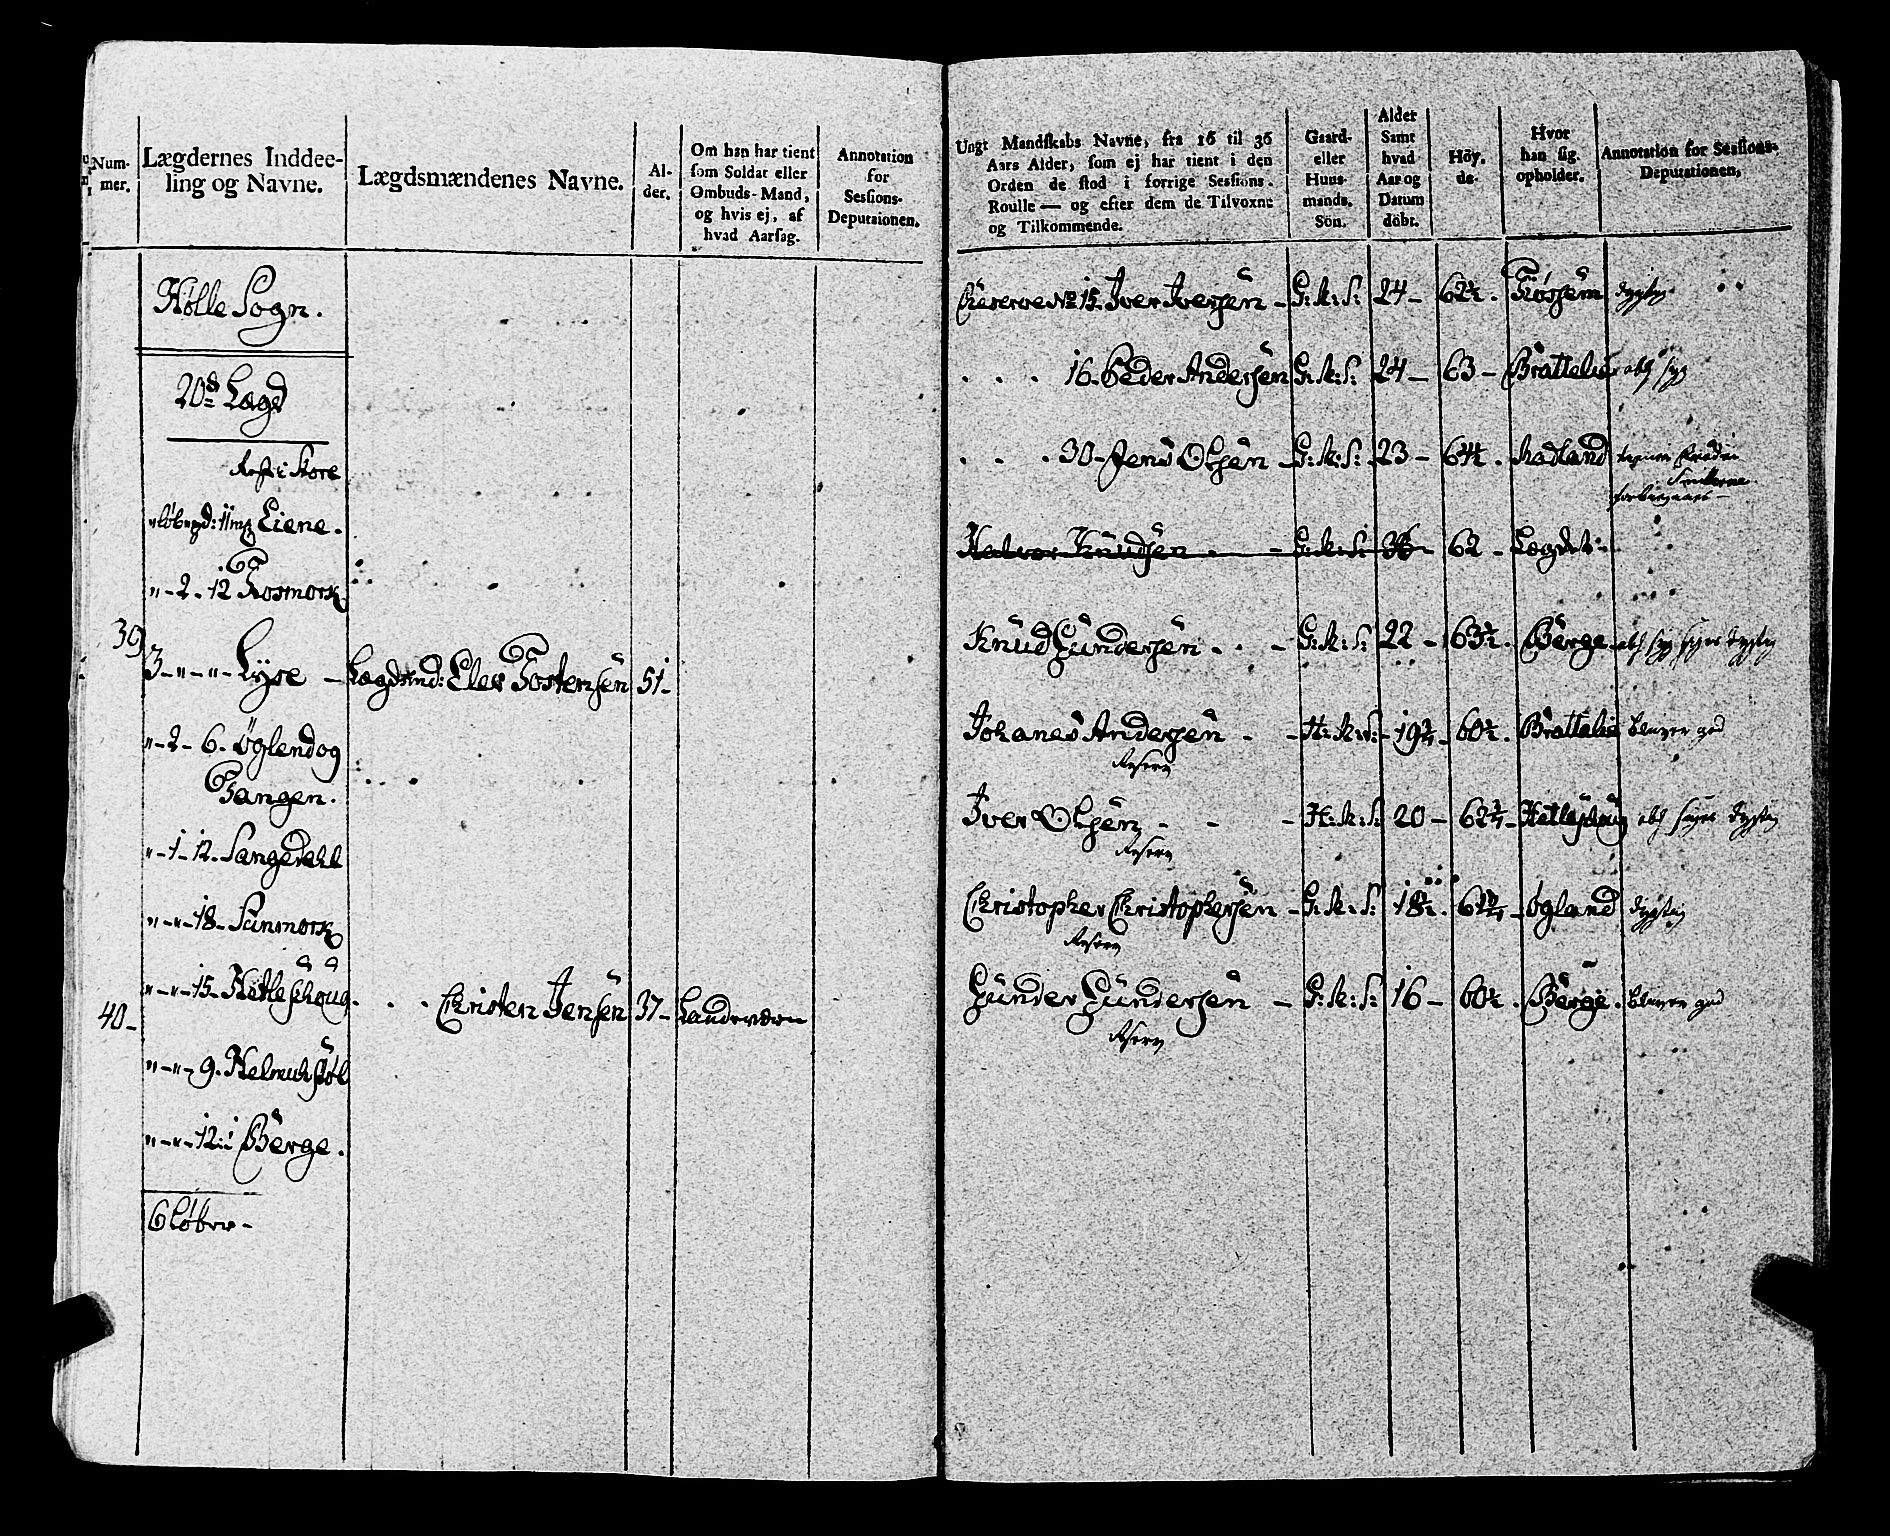 Num-
mer.
Lægdernes Inddee-
ling og Navne.
Lægdsmændenes Navne.
Al-
der.
Om han har tient
som Soldat eller
Ombuds-Mand,
og hvis ej, af
hvad Aarsag.
Annotation
for
Sessions-
Deputaionen.
Hølle Sogn.
20de Lægd
Rest i Store
Liene.
"-2-12 Fosmork
39
3-"-"-Lyse - Lægdsmd: Elev Tostensen 51-
"-2-6. Øglend og
Tangen.
"-1-12. Sangesand
"-"-18-
"-"-15- Hetleschoug . . . Christen Jensen 37- Landeværn
40-
"-"-9.
"-"-12 i Berge.
6 Løber-
Ungt Mandskabs Navne, fra 16 til 36
Aars Alder, som ej har tient i den
Orden de stod i forrige Sessions-
Roulle — og efter dem de Tilvoxne
og Tilkommende.
Gaard-
eller
Huus-
mands.
Sön.
Alder
Samt
hvad
Aar og
Datum
döbt.
Höy-
de.
Hvor
han sig
opholder.
Annotation for Sessions-
Deputationen,
Reserve No 15. Iver Iversen - G: M: S: 24- 62½. Fossem dygtig
. . . 16. Peder Andersen G: M: S: 24- 63- Brattelie syg
. . . 30- Jens Olsen - G: M: S: 23- 64½. Radland
Halvor Knudsen . - G: M: S: 36- 62- Lægdet
Knud Gundersen . . - G: M: S: 22- 63½. Berge dygtig
Johanes Andersen - - H: M: S: 19¾- 60½. Brattelie
Reserv
Iver Olsen - - - H: M: S: 20- 62¾- dygtig
Reserv
Christopher Christophersen - G: M: S: 18½. Øgland dygtig
Reserv
Gunder Gundersen - G: M: S: 16- 60½. Berge.
Reserv